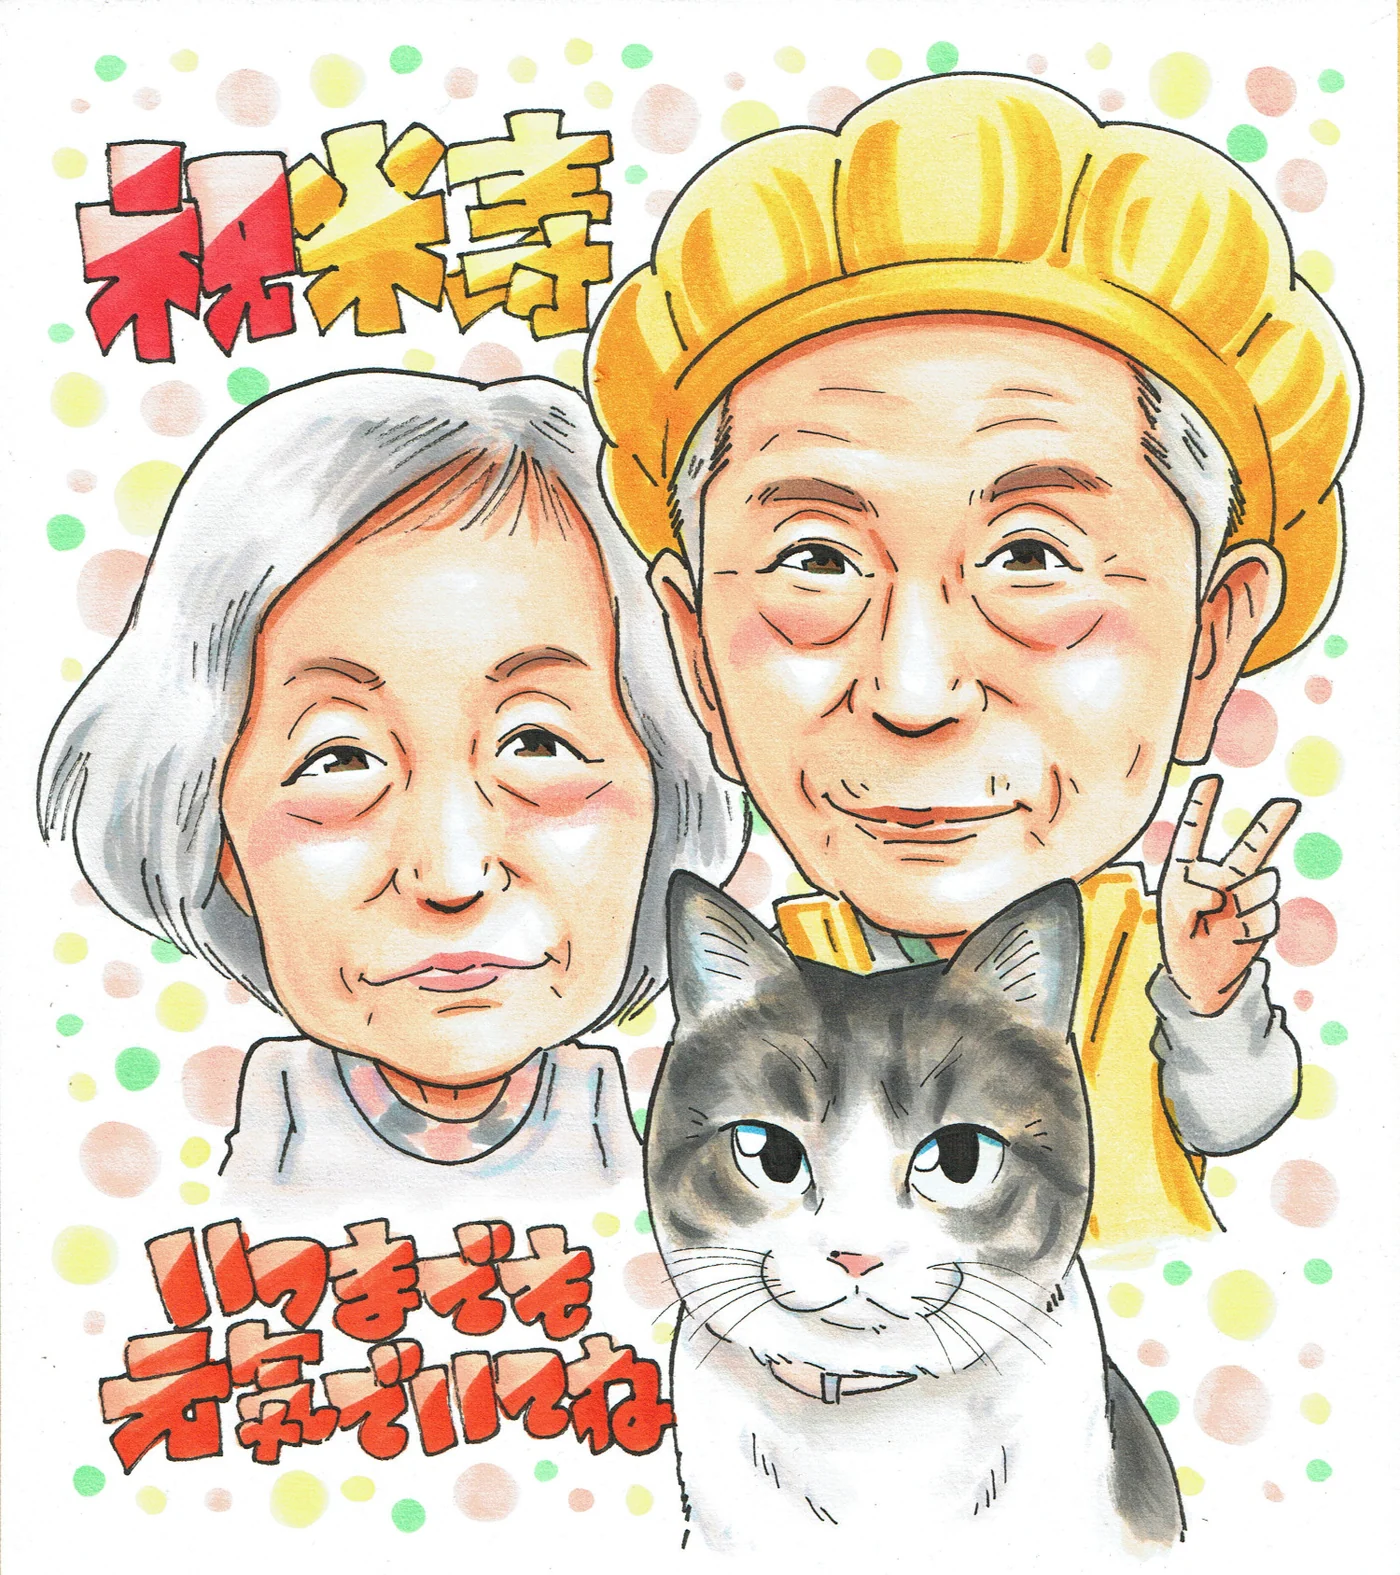 祝米寿
いつまでも
元気でいてね